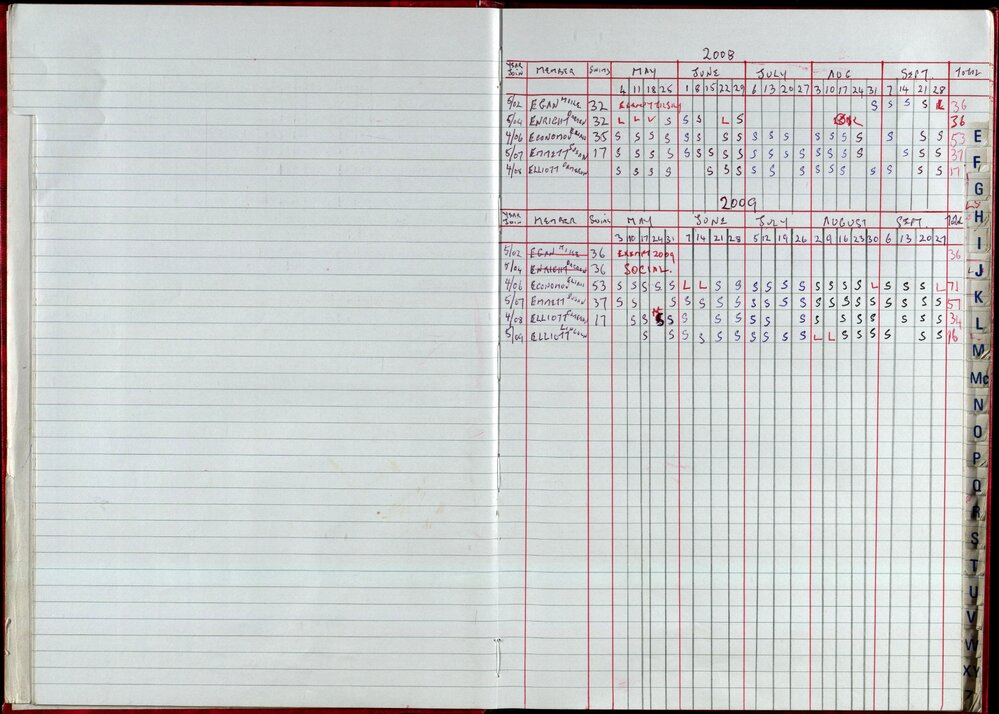 2008
YEAR JOIN MEMBER SWIMS MAY JUNE JULY AUG SEPT. TOTAL
4 11 18 25 1 8 15 22 29 6 13 20 27 3 10 17 24 31 7 14 21 28
5/02 EGAN MIKE 32 S S S S L 36
5/04 ENRIGHT 32 L L V S S L S 36
4/06 ECONOMOU 35 S S S S S S S S S S S S S S S S S S S 53
5/07 EMMETT 17 S S S S S S S S S S S S S S S S S S S S 37
4/08 ELLIOTT S S S S S S S S S S S S S S S S S 17
2009
YEAR JOIN MEMBER SWIMS MAY JUNE JULY AUGUST SEPT. TOTAL
3 10 17 24 31 7 14 21 28 5 12 19 26 2 9 16 23 30 6 13 20 27
5/02 EGAN MIKE 36 EXEMPT 2009 36
5/04 ENRIGHT 36 SOCIAL.
4/06 ECONOMOU 53 S S S S S L L S S S S S S S S S S L S S S L 71
5/07 EMMETT 37 S S S S S S S S S S S S S S S S S S S S 57
4/08 ELLIOTT 17 S S S S S S S S S S S S S S S S S 34
5/09 ELLIOTT S S S S S S S S S S L L S S S S S S 16
E
F
G
H
I
J
K
L
M
Mc
N
O
P
Q
R
S
T
U
V
W
XY
Z